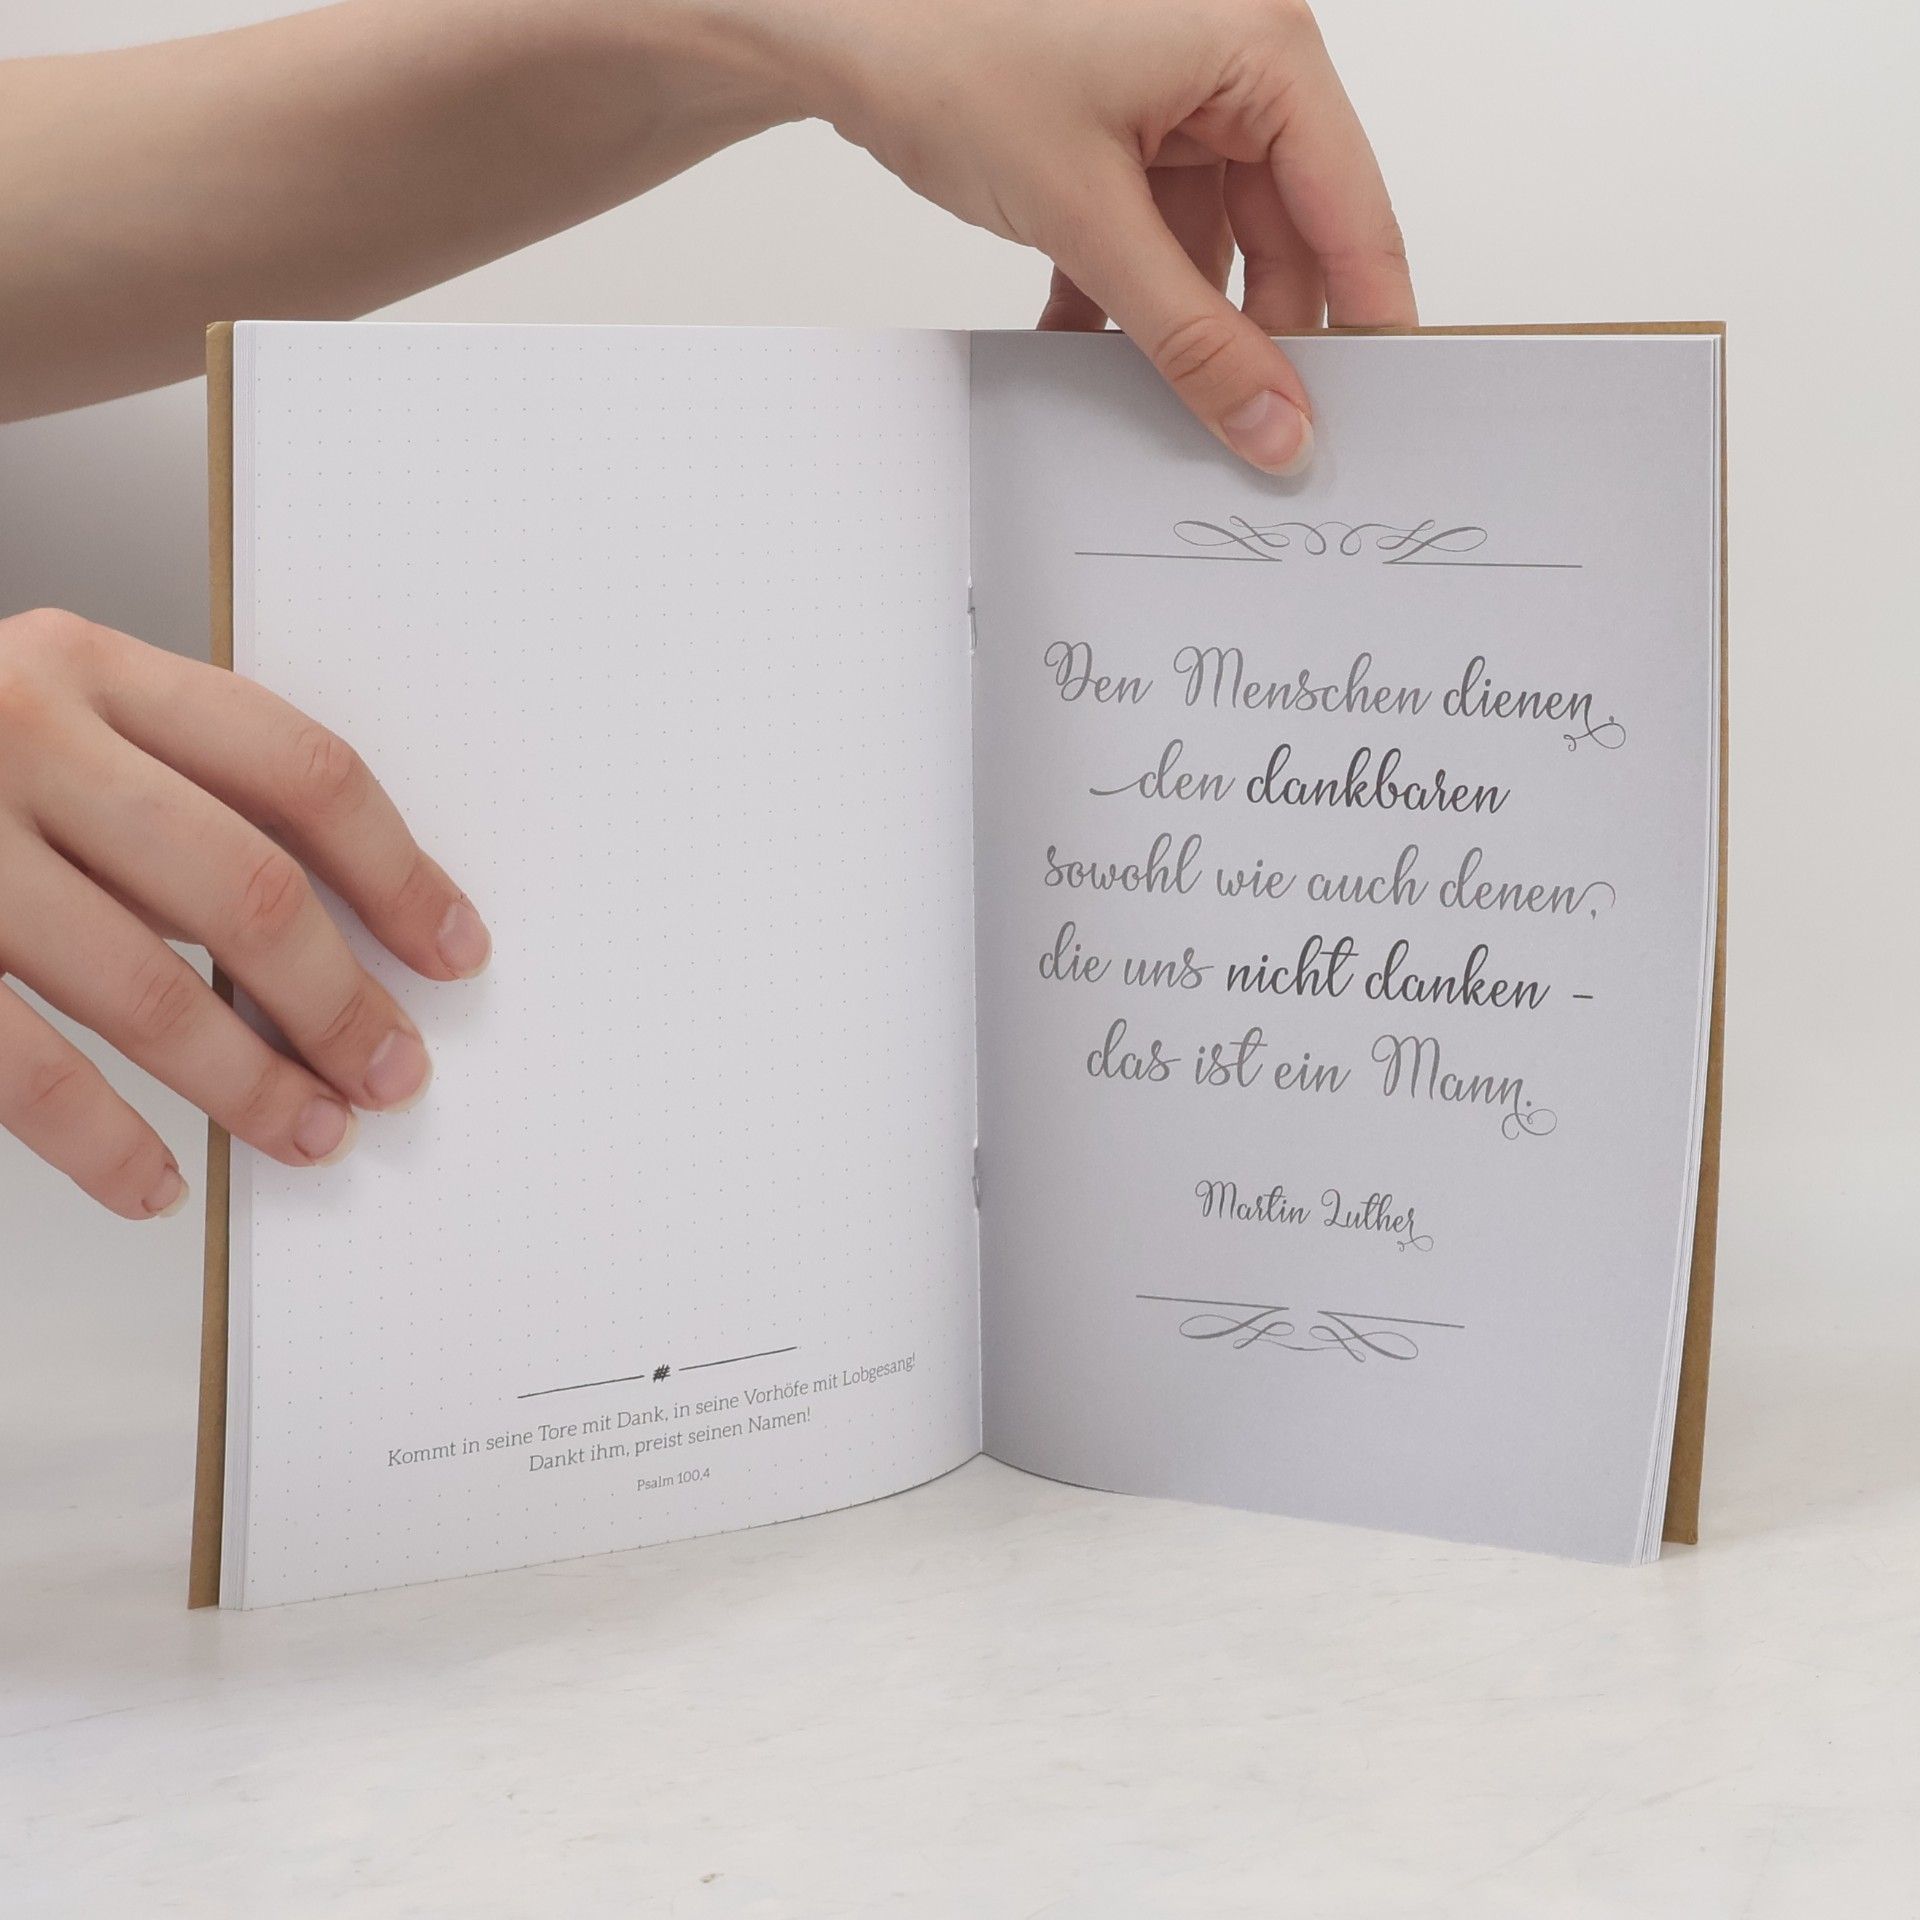 #
Kommt in seine Tore mit Dank, in seine Vorhöfe mit Lobgesang!
Dankt ihm, preist seinen Namen!
Psalm 100,4
Den Menschen dienen,
den dankbaren
sowohl wie auch denen,
die uns nicht danken –
das ist ein Mann.
Martin Luther